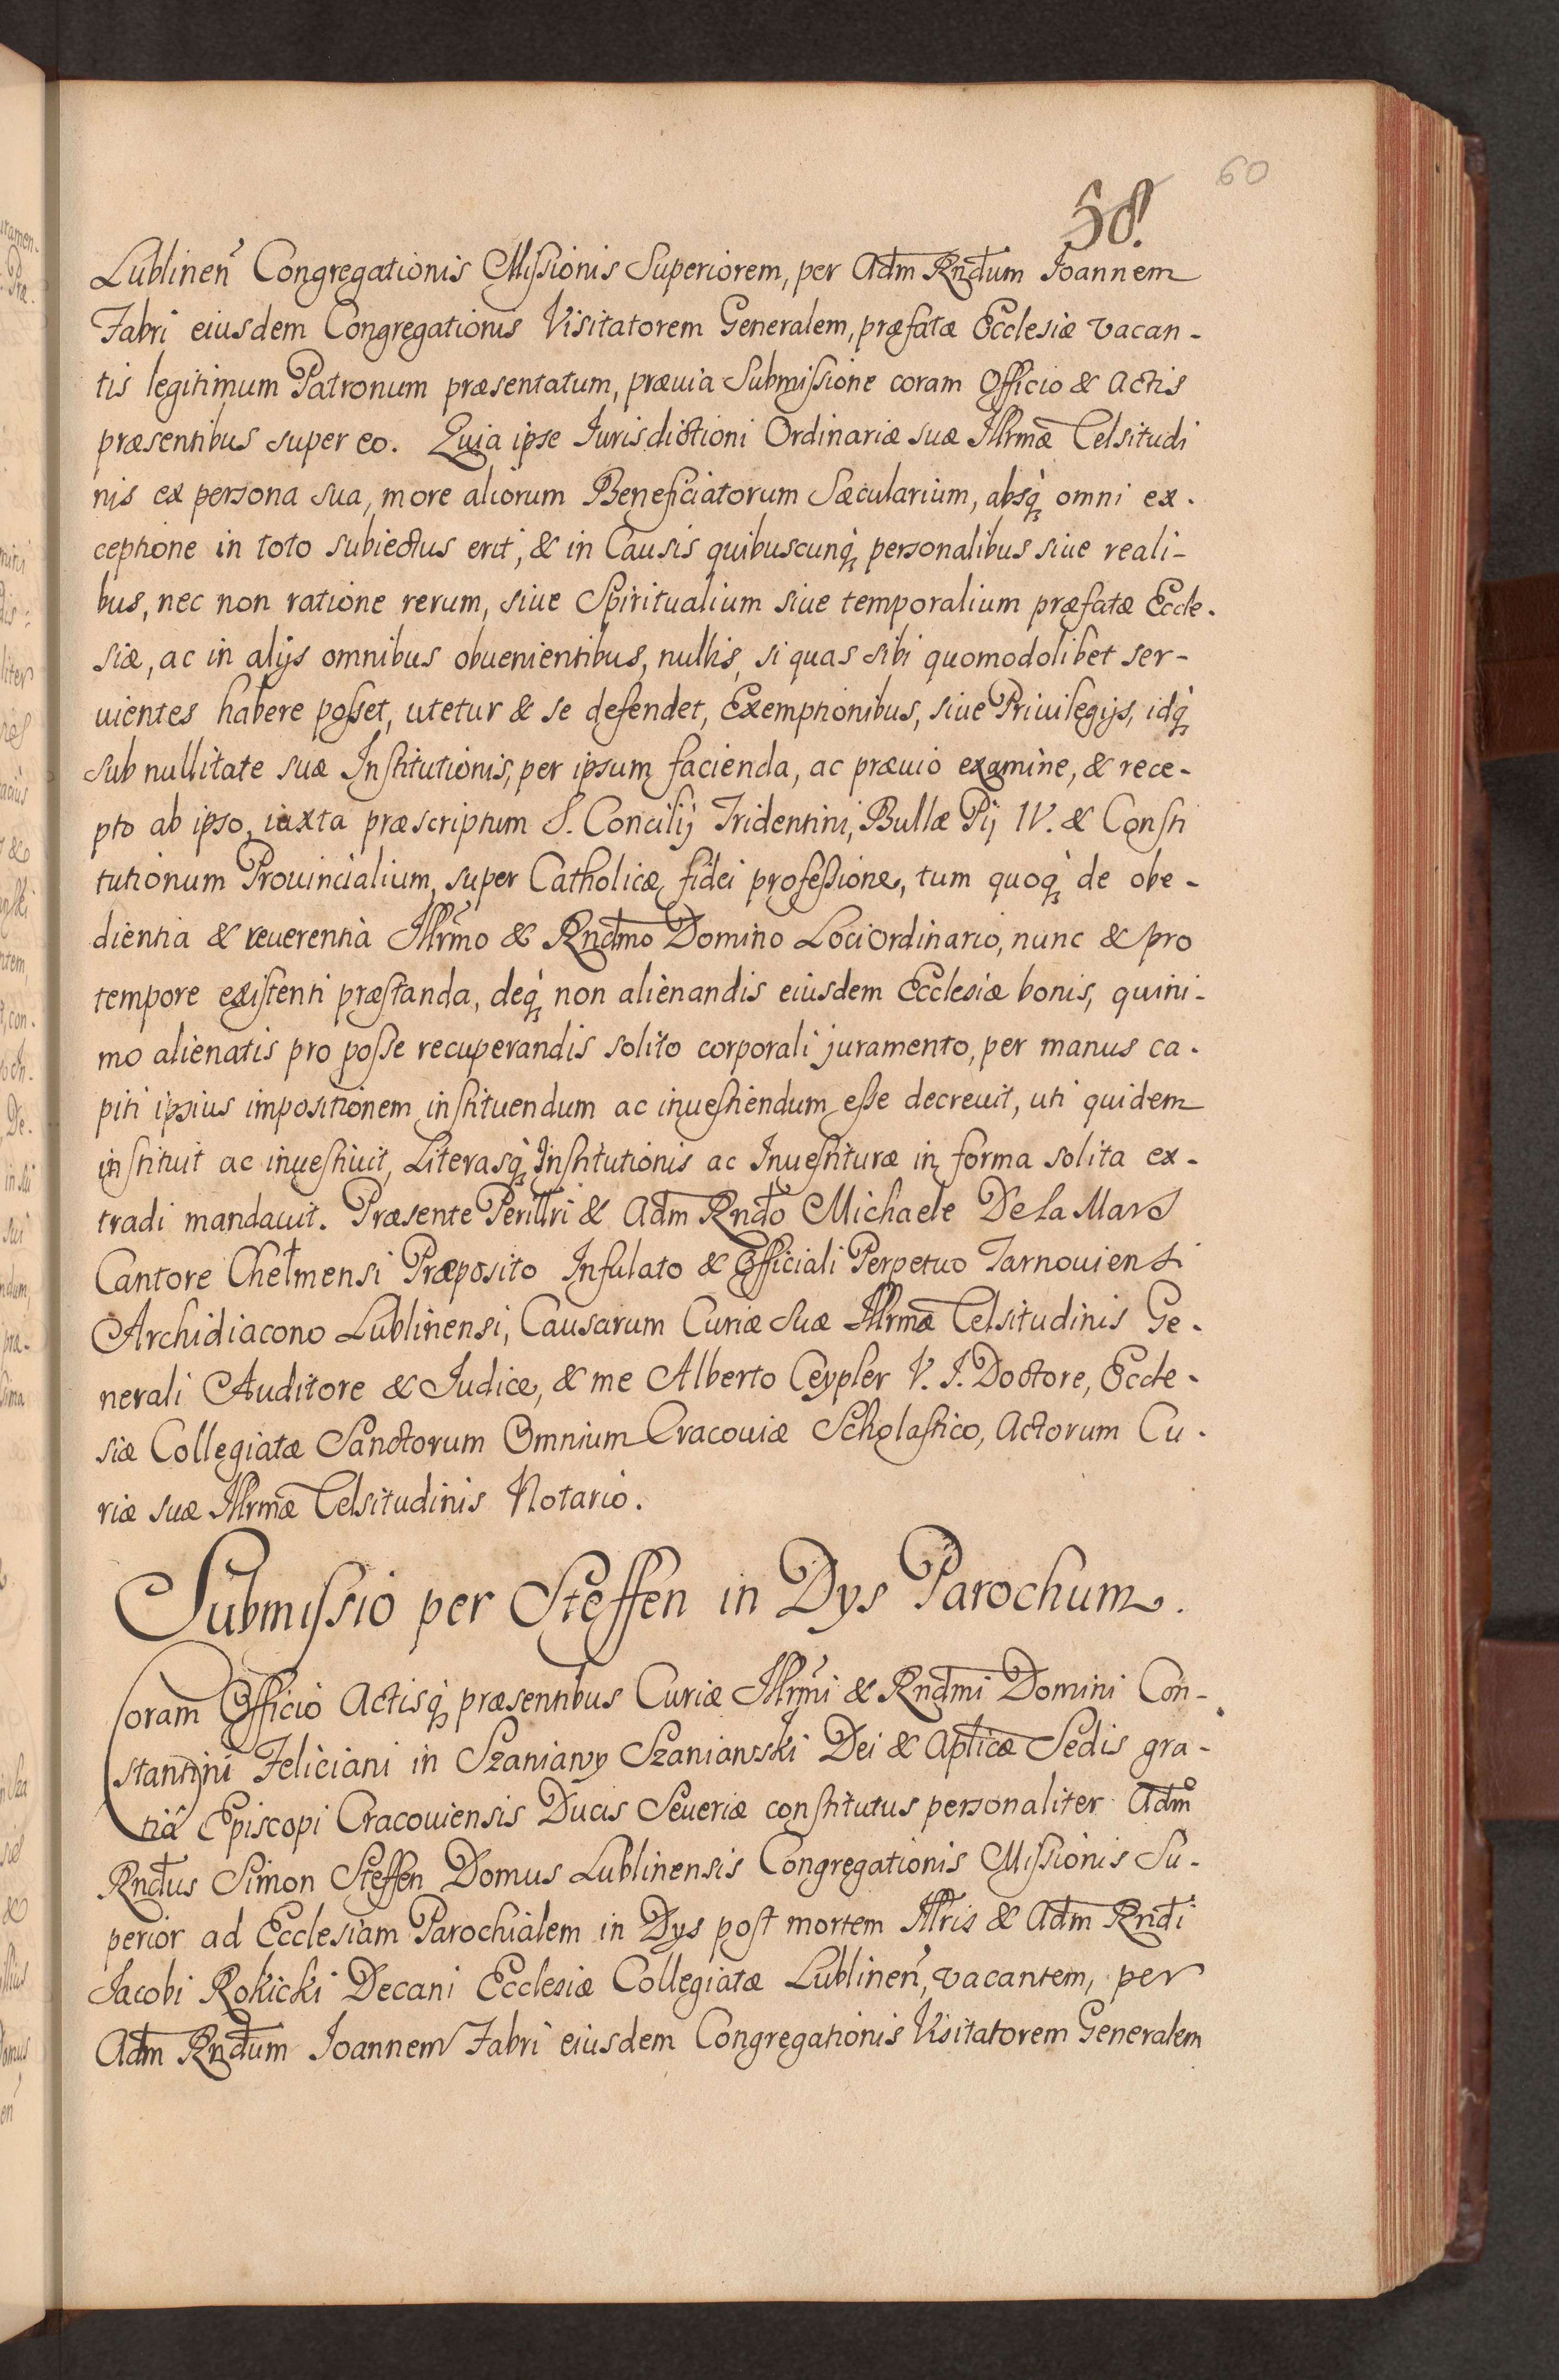 60
58.
Lublinen̄ Congregationis Missionis Superiorem, per Adm̄ Rnd̄um Ioannem
Fabri eiusdem Congregationis Visitatorem Generalem, præfatæ Ecclesiæ vacan-
tis legitimum Patronum præsentatum, præuia Submissione coram Officio & Actis
præsentibus super eo. Quia ipse Iurisdictioni Ordinariæ suæ Illrmæ Celsitudi
nis ex persona sua, more aliorum Beneficiatorum Sæcularium, absq́ omni ex-
ceptione in toto subiectus erit, & in Causis quibuscunq́ personalibus siue reali-
bus, nec non ratione rerum, siue Spiritualium siue temporalium præfatæ Eccle-
siæ, ac in alijs omnibus obuenientibus, nullis, si quas sibi quomodolibet ser-
uientes habere posset, utetur & se defendet, Exemptionibus, siue Priuilegijs, idq́
sub nullitate suæ Institutionis, per ipsum facienda, ac præuio examine, & rece-
pto ab ipso, iuxta præscriptum S. Concilij Tridentini, Bullæ Pij IV. & Consti
tutionum Prouincialium, super Catholicæ fidei professione, tum quoq́ de obe-
dientia & reuerentia Illrm̄o & Rnd̄mo Domino Loci Ordinario, nunc & pro
tempore existenti præstanda, deq́ non alienandis eiusdem Ecclesiæ bonis, quini-
mo alienatis pro posse recuperandis solito corporali juramento, per manus ca-
piti ipsius impositionem instituendum ac inuestiendum esse decreuit, uti quidem
instituit ac inuestiuit, Literasq́ Institutionis ac Inuestituræ in forma solita ex-
tradi mandauit. Præsente Perillri & Adm̄ Rnd̄o Michaele De la Mars
Cantore Chełmensi Præposito Infulato & Officiali Perpetuo Tarnouiensi
Archidiacono Lublinensi, Causarum Curiæ Suæ Illrmæ Celsitudinis Ge-
nerali Auditore & Iudice, & me Alberto Ceypler V. I. Doctore, Eccle-
siæ Collegiatæ Sanctorum Omnium Cracouiæ Scholastico, Actorum Cu-
riæ suæ Illrmæ Celsitudinis Notario.
Submissio per Steffen in Dys Parochum.
Coram Officio Actisq́ præsentibus Curiæ Illrm̄i & Rnd̄mi Domini Con-
stantini Feliciani in Szaniawy Szaniawski Dei & Apl̄icæ Sedis gra-
tiâ Episcopi Cracouiensis Ducis Seueriæ constitutus personaliter Adm̄
Rnd̄us Simon Steffen Domus Lublinensis Congregationis Missionis Su-
perior ad Ecclesiam Parochialem in Dys post mortem Illris & Adm̄ Rnd̄i
Iacobi Rokicki Decani Ecclesiæ Collegiatæ Lublinen̄, vacantem, per
Adm̄ Rnd̄um Ioannem Fabri eiusdem Congregationis Visitatorem Generalem